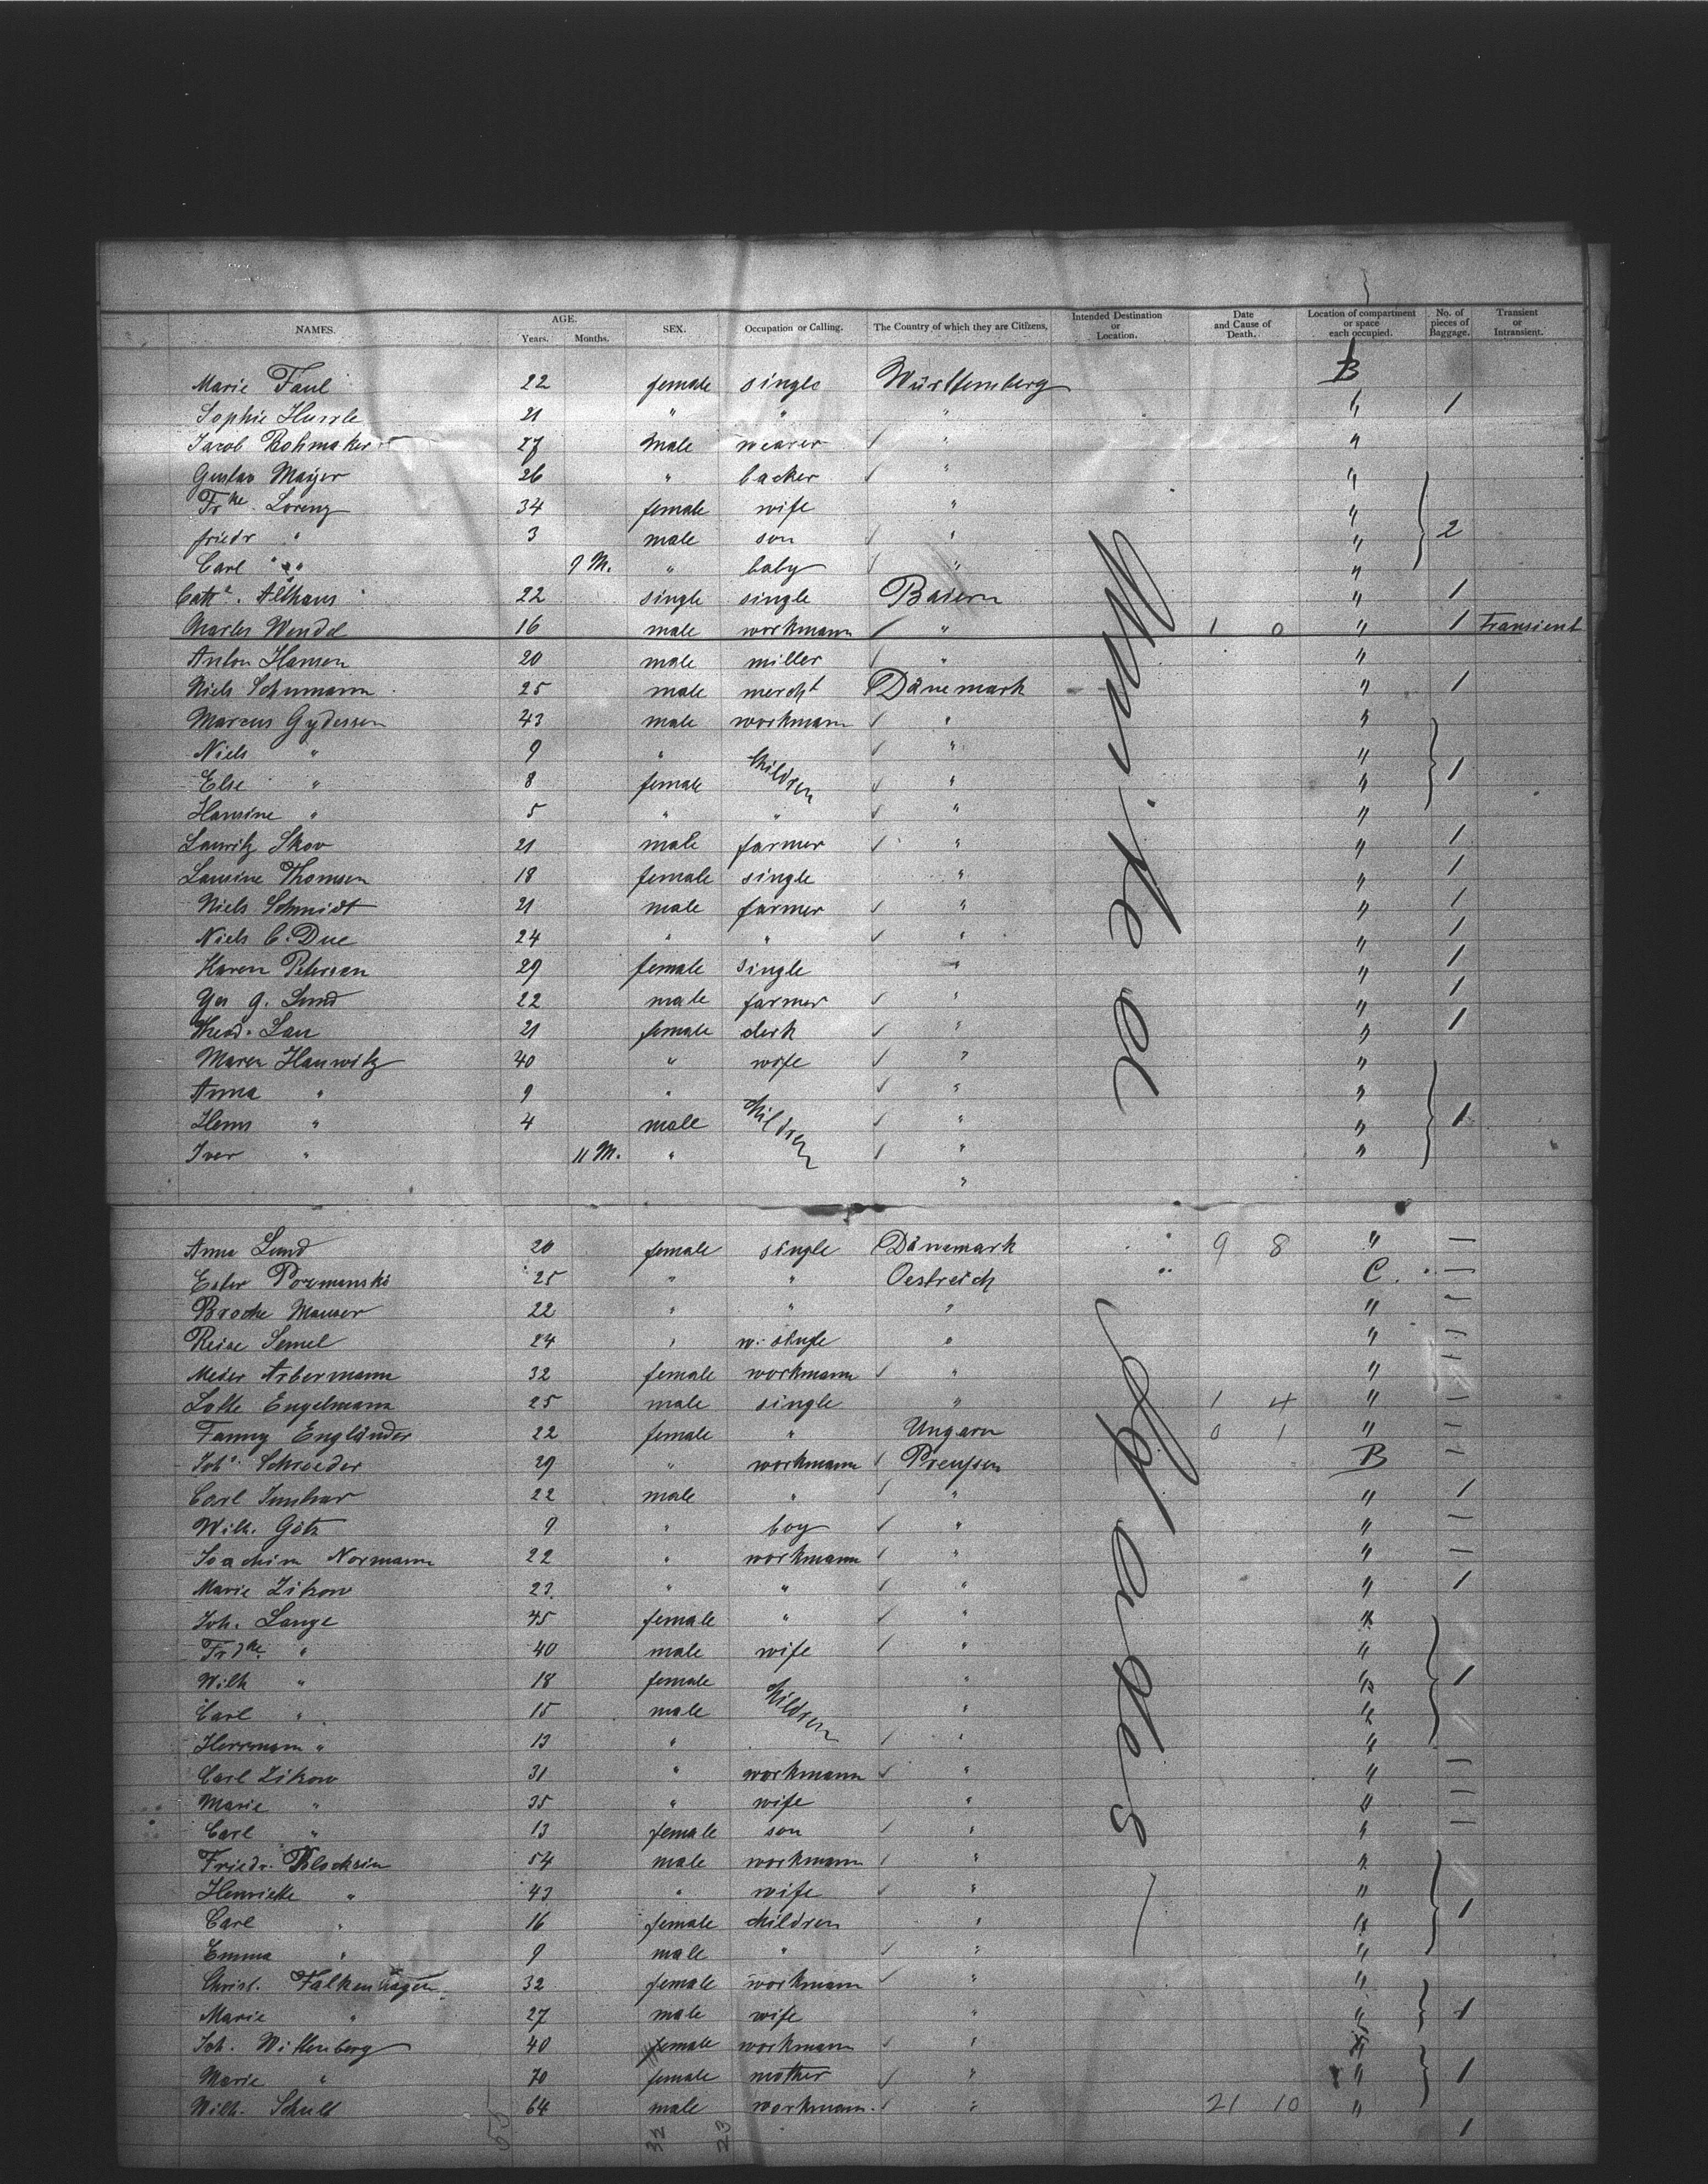 NAMES. AGE. Years. Months. SEX. Occupation or Calling. The Country of which they are Citizens, Intended Destination or Location. Date and Cause of Death. Location of compartment or space each occupied. No. of pieces of Baggage. Transient or Intransient.
Marie Faul 22 female single Württemberg B
Sophie 21 " " " " 1
Jacob Bohmaker 27 male wearer " "
Gustav Mayer 26 " backer " "
Frke. Lorenz 34 female wife " "
friedr " 3 male son " " 2
Carl " 9 M. " baby " "
Cathe. Althaus 22 single single Baiern " 1
Charles Wendel 16 male workmann " 1 0 " 1 Transient
Anton Hansen 20 male miller " "
Niels Schumann 25 male mercht Dänemark " 1
Marcus Gydessen 43 male workmann " "
Niels " 9 " Children " "
Else " 8 female " " 1
Hansine " 5 " " " "
Lauritz Skov 21 male farmer " " 1
Laurine Thomsen 18 female single " " 1
Niels Schmidt 21 male farmer " " 1
Niels C. Due 24 " " " " 1
Karen Petersen 29 female single " " 1
g. Lund 22 male farmer " " 1
Theod. Lau 21 female clerk " " 1
Maren Hanwitz 40 " wife " "
Anna " 9 " children " "
Hans " 4 male " " 1
Iver " 11 M. " " "
"
United
Anna Lund 20 female single Dänemark 9 8 " —
Ester Pozmanski 25 " " Oestreich C. —
Broche Mauser 22 " " " " —
Reise Semel 24 " " " —
Meder Arbermann 32 female workmann " " —
Lotte Engelmann 25 male single " 1 4 " —
Fanny Engländer 22 female " Ungarn 0 1 " —
Johs. Schroeder 29 " workmann Preussen B —
Carl 22 male " " " 1
Wilh. Götz 9 " boy " " —
Joachim Normann 22 " workmann " " —
Marie Zikow 23 " " " " 1
Joh. Lange 45 female " " "
Frdke. " 40 male wife " "
Wilh " 18 female children " " 1
Carl " 15 male " "
Herrmann " 13 " " "
Carl Zikow 31 " workmann " " —
Marie " 35 " wife " " —
Carl " 13 female son " " —
Friedr. Blocksin 54 male workmann " "
Henriette " 43 " wife " "
Carl " 16 female children " " 1
Emma " 9 male " " "
Christ. Falkenhagen 32 female workmann " "
Marie " 27 male wife " " 1
Joh. Wittenberg 40 female workmann " "
Marie " 70 female mother " " 1
Wilh. Schult 64 male workmann " 21 10 "
1
States
55 32 23